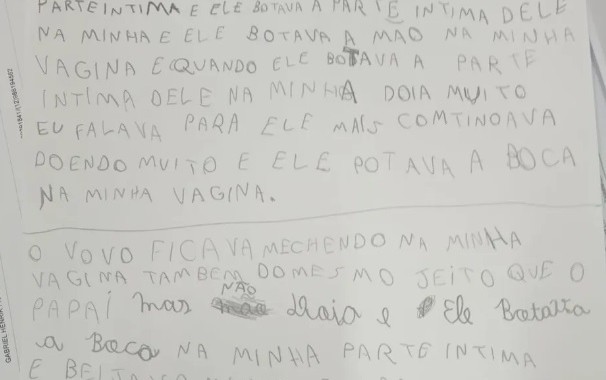 PARTE INTIMA E ELE BOTAVA A PARTE INTIMA DELE
NA MINHA E ELE BOTAVA A MAO NA MINHA
VAGINA E QUANDO ELE BOTAVA A PARTE
INTIMA DELE NA MINHA DOIA MUITO
EU FALAVA PARA ELE MAIS COMTINOAVA
DOENDO MUITO E ELE POTAVA A BOCA
NA MINHA VAGINA.
O VOVO FICAVA MECHENDO NA MINHA
VAGINA TAMBEM DO MESMO JEITO QUE O
PAPAI mas NÃO doia e Ele Botava
a Boca NA MINHA PARTE INTIMA
E